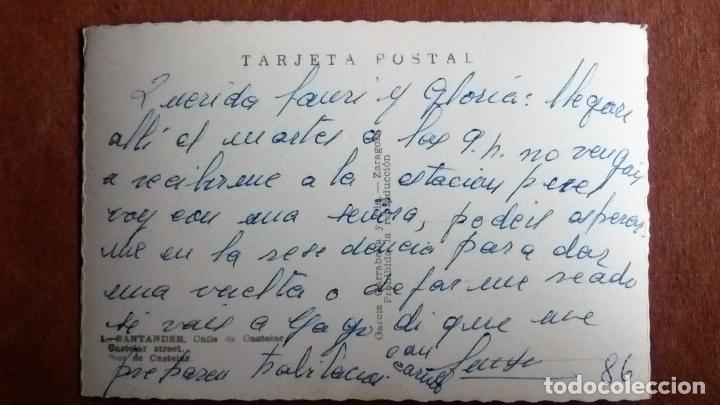 TARJETA POSTAL
Querida Lauri y Gloria: llegare
alli el martes a las 9 h. no vengais
a recibirme a la estacion pues
voy con una señora, podeis esperar
me en la residencia para dar
una vuelta o dejarme recado
si vais a di que me
preparen habitacion con
cariño
86
García Garrabella y Cía.—Zaragoza
Prohibida la reproducción
1.—SANTANDER. Calle de Castelar
Castelar street.
Rue de Castelar.
todocoleccion
todocoleccion.net